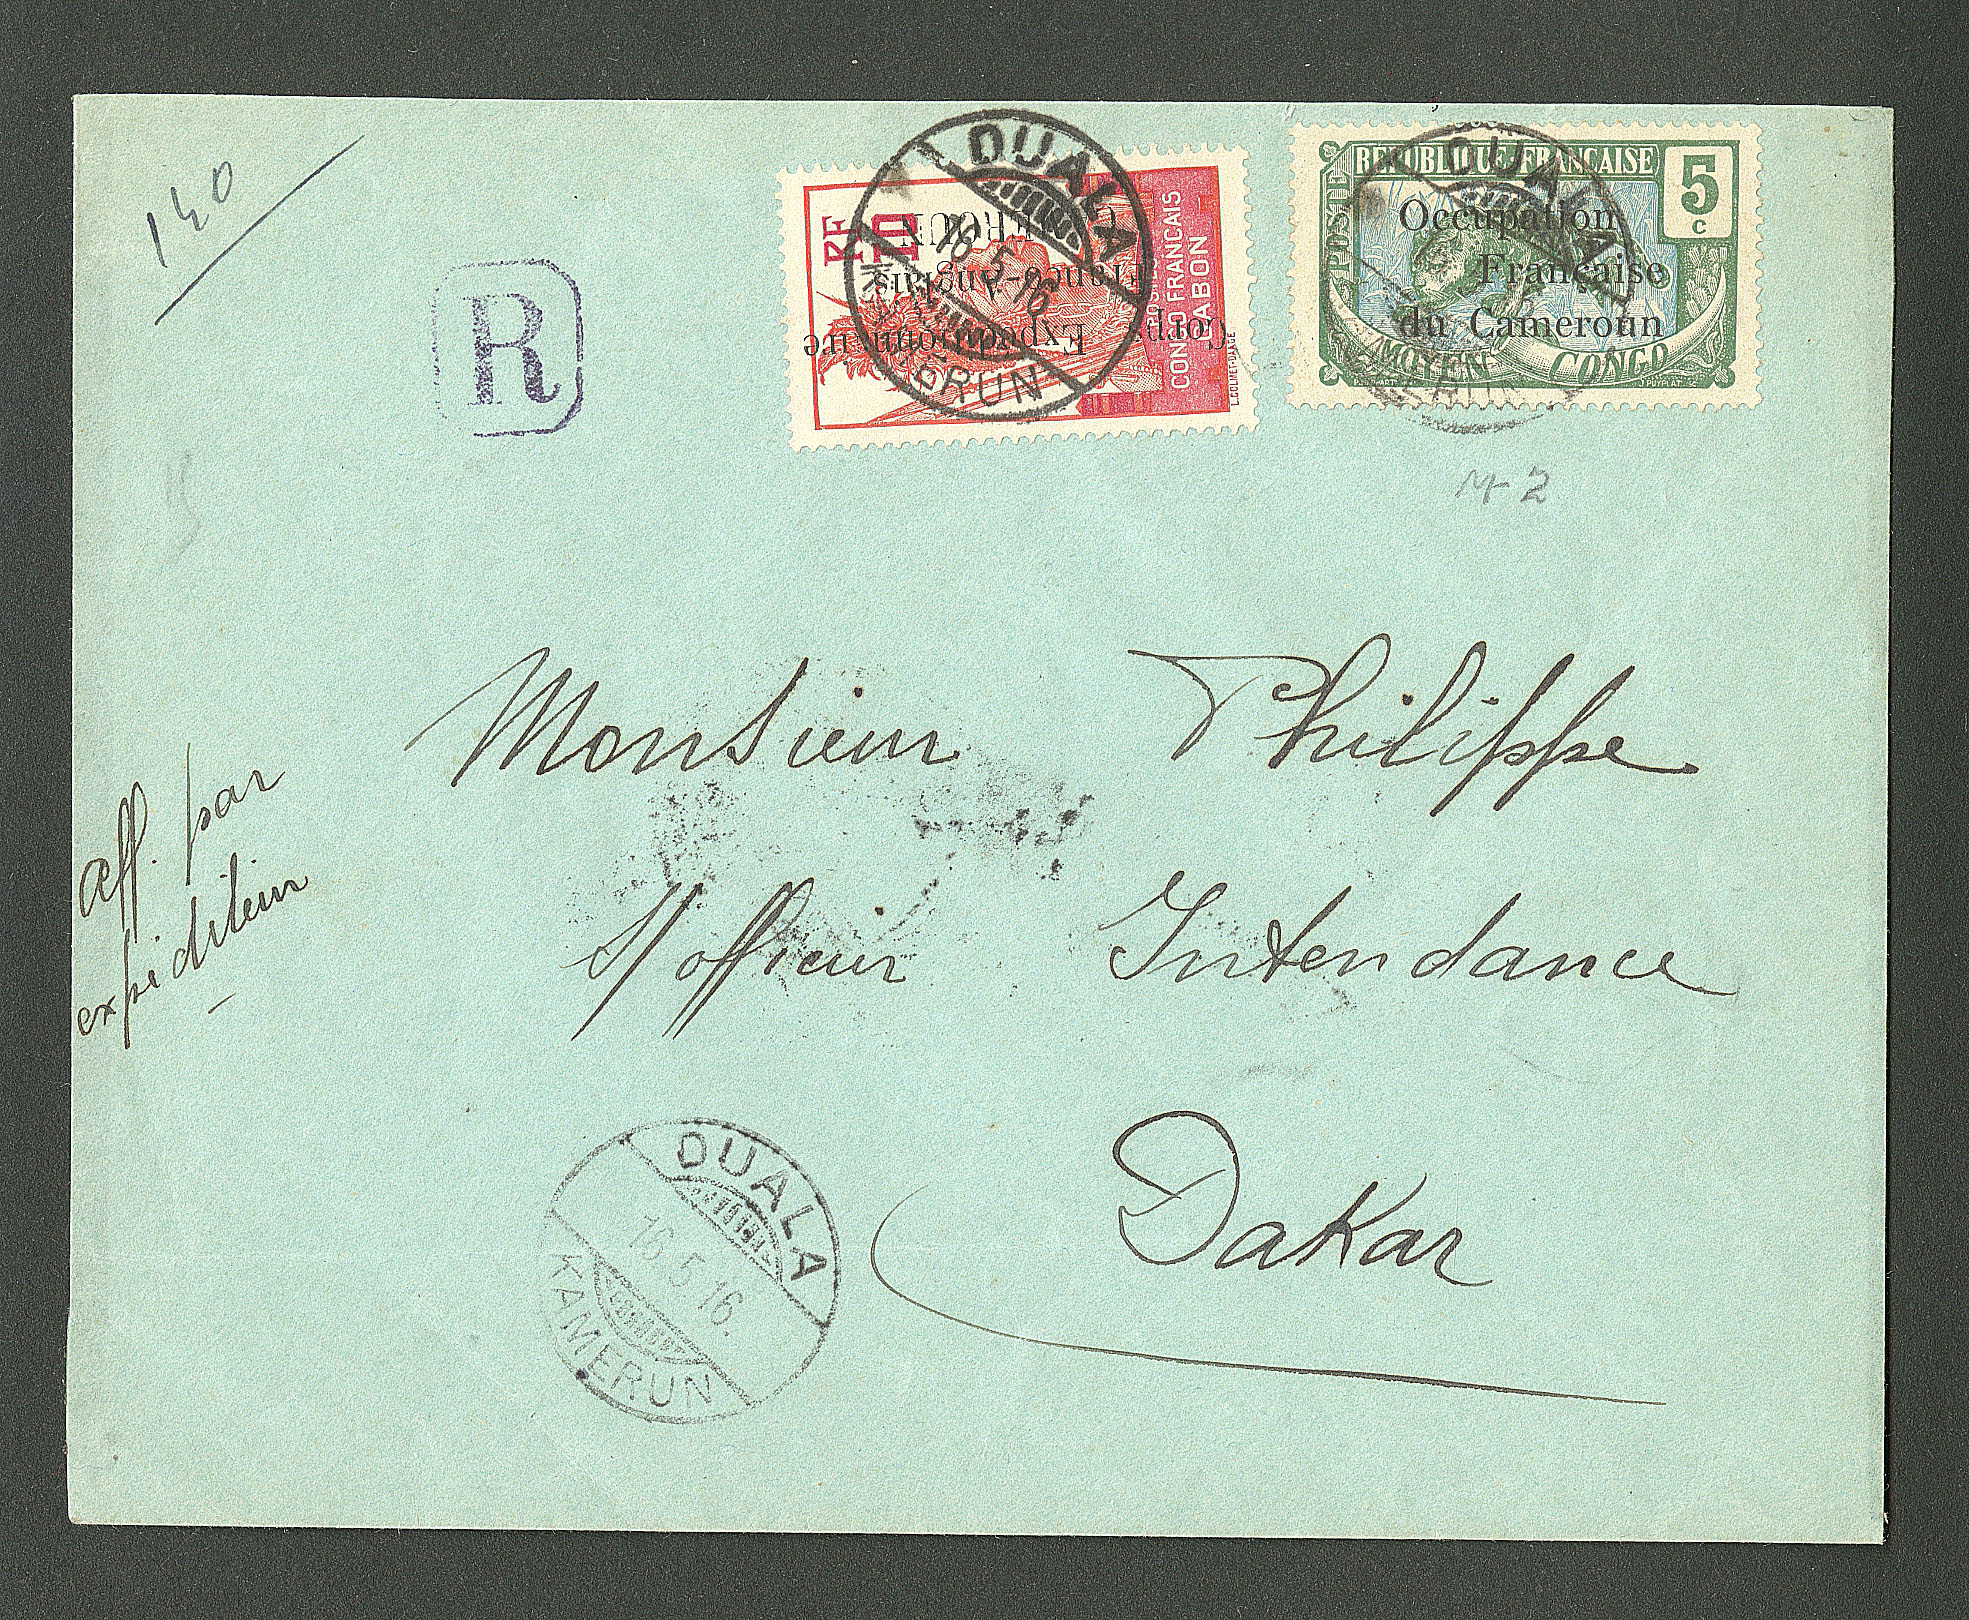 140
R
RF
10
CONGO FRANCAIS
GABON
POSTES
L.COLMET-DAAGE
Corps Expéditionnaire
Franco-Anglais
CAMEROUN
DUALA
16 5 16
KAMERUN
REPUBLIQUE FRANÇAISE
POSTE
5
c
MOYEN CONGO
J PUYPLAT. SC
Occupation
Française
du Cameroun
DUALA
2
Monsieur Philippe
aff. par
expéditeur
S/officier Intendance
Dakar
DUALA
16.5.16.
KAMERUN